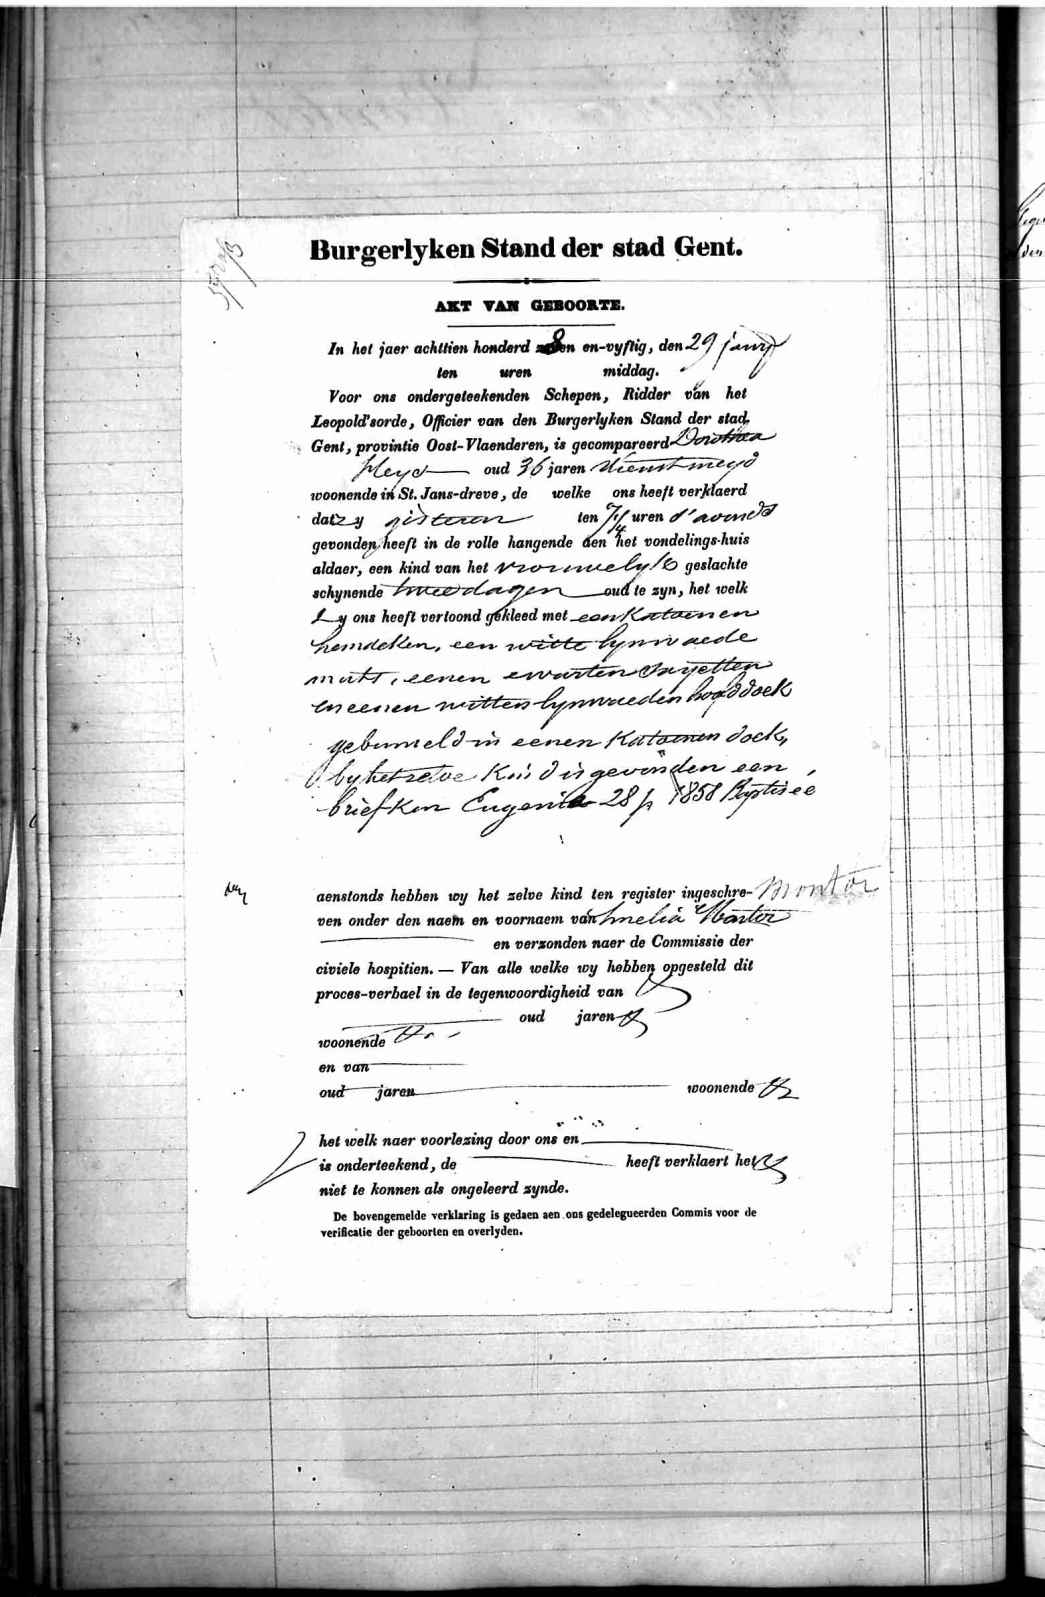 Burgerlyken Stand der stad Gent.
AKT VAN GEBOORTE.
In het jaer achttien honderd 8 en-vyftig, den 29 january
ten uren middag.
Voor ons ondergeteekenden Schepen, Ridder van het
Leopold'sorde, Officier van den Burgerlyken Stand der stad
Gent, provintie Oost-Vlaenderen, is gecompareerd Dorothea
Heyd oud 36 jaren dienstmeyd
woonende in St. Jans-dreve, de welke ons heeft verklaerd
dat zy gisteren ten 7 1/4 uren s'avonds
gevonden heeft in de rolle hangende aen het vondelings-huis
aldaer, een kind van het vrouwelyk geslachte
schynende twee dagen oud te zyn, het welk
zy ons heeft vertoond gekleed met een Katoenen
hemdeken, een witte lynwaede
muts, eenen swarten
en eenen witten lynwaeden hoofddoek
gebunseld in eenen Katoenen doek,
by het zelve Kind is gevonden een
briefken Eugenie 28 1858 Baptisée
aenstonds hebben wy het zelve kind ten register ingeschre- Montor
ven onder den naem en voornaem van Amelia Montor
en verzonden naer de Commissie der
civiele hospitien. — Van alle welke wy hebben opgesteld dit
proces-verbael in de tegenwoordigheid van
oud jaren
woonende
en van
oud jaren woonende
het welk naer voorlezing door ons en
is onderteekend, de heeft verklaert het
niet te konnen als ongeleerd zynde.
De bovengemelde verklaring is gedaen aen ons gedelegueerden Commis voor de
verificatie der geboorten en overlyden.